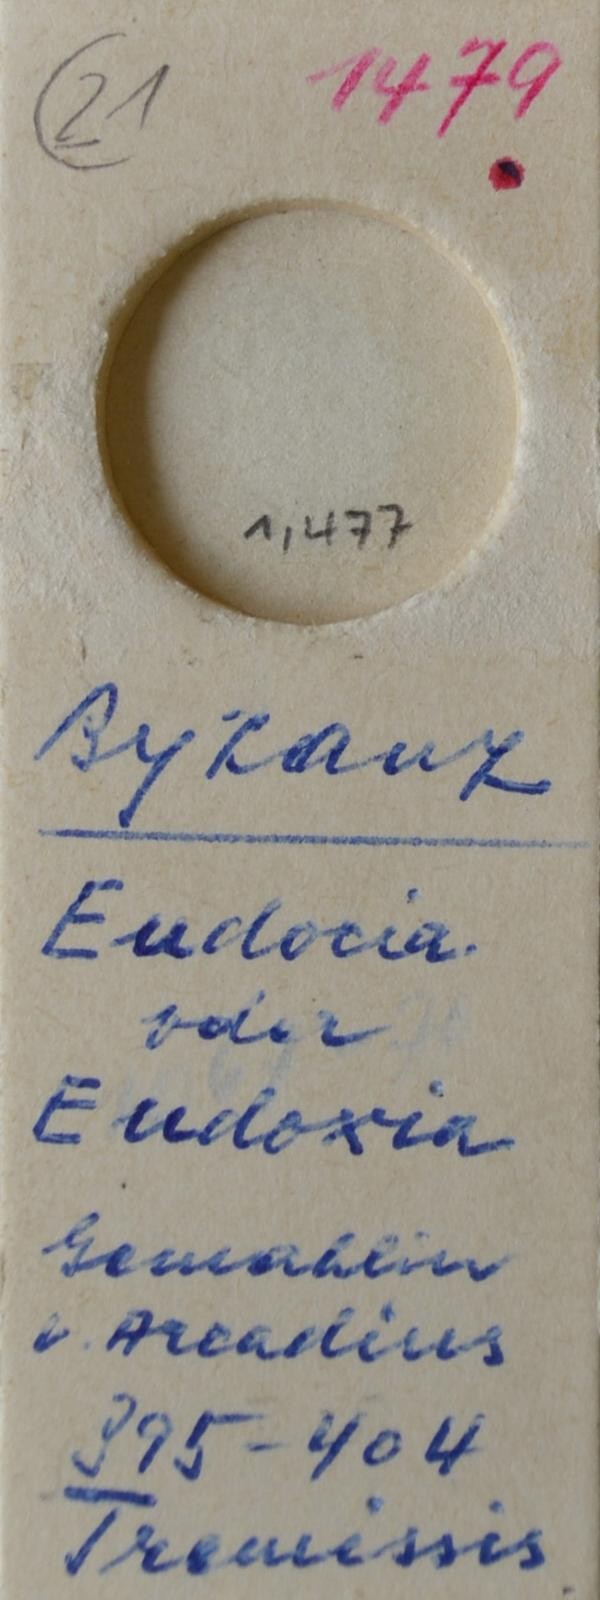 21 1479
1,477
Byzanz
Eudocia
oder
Eudoxia
Gemahlin
v. Arcadius
395-404
Tremissis